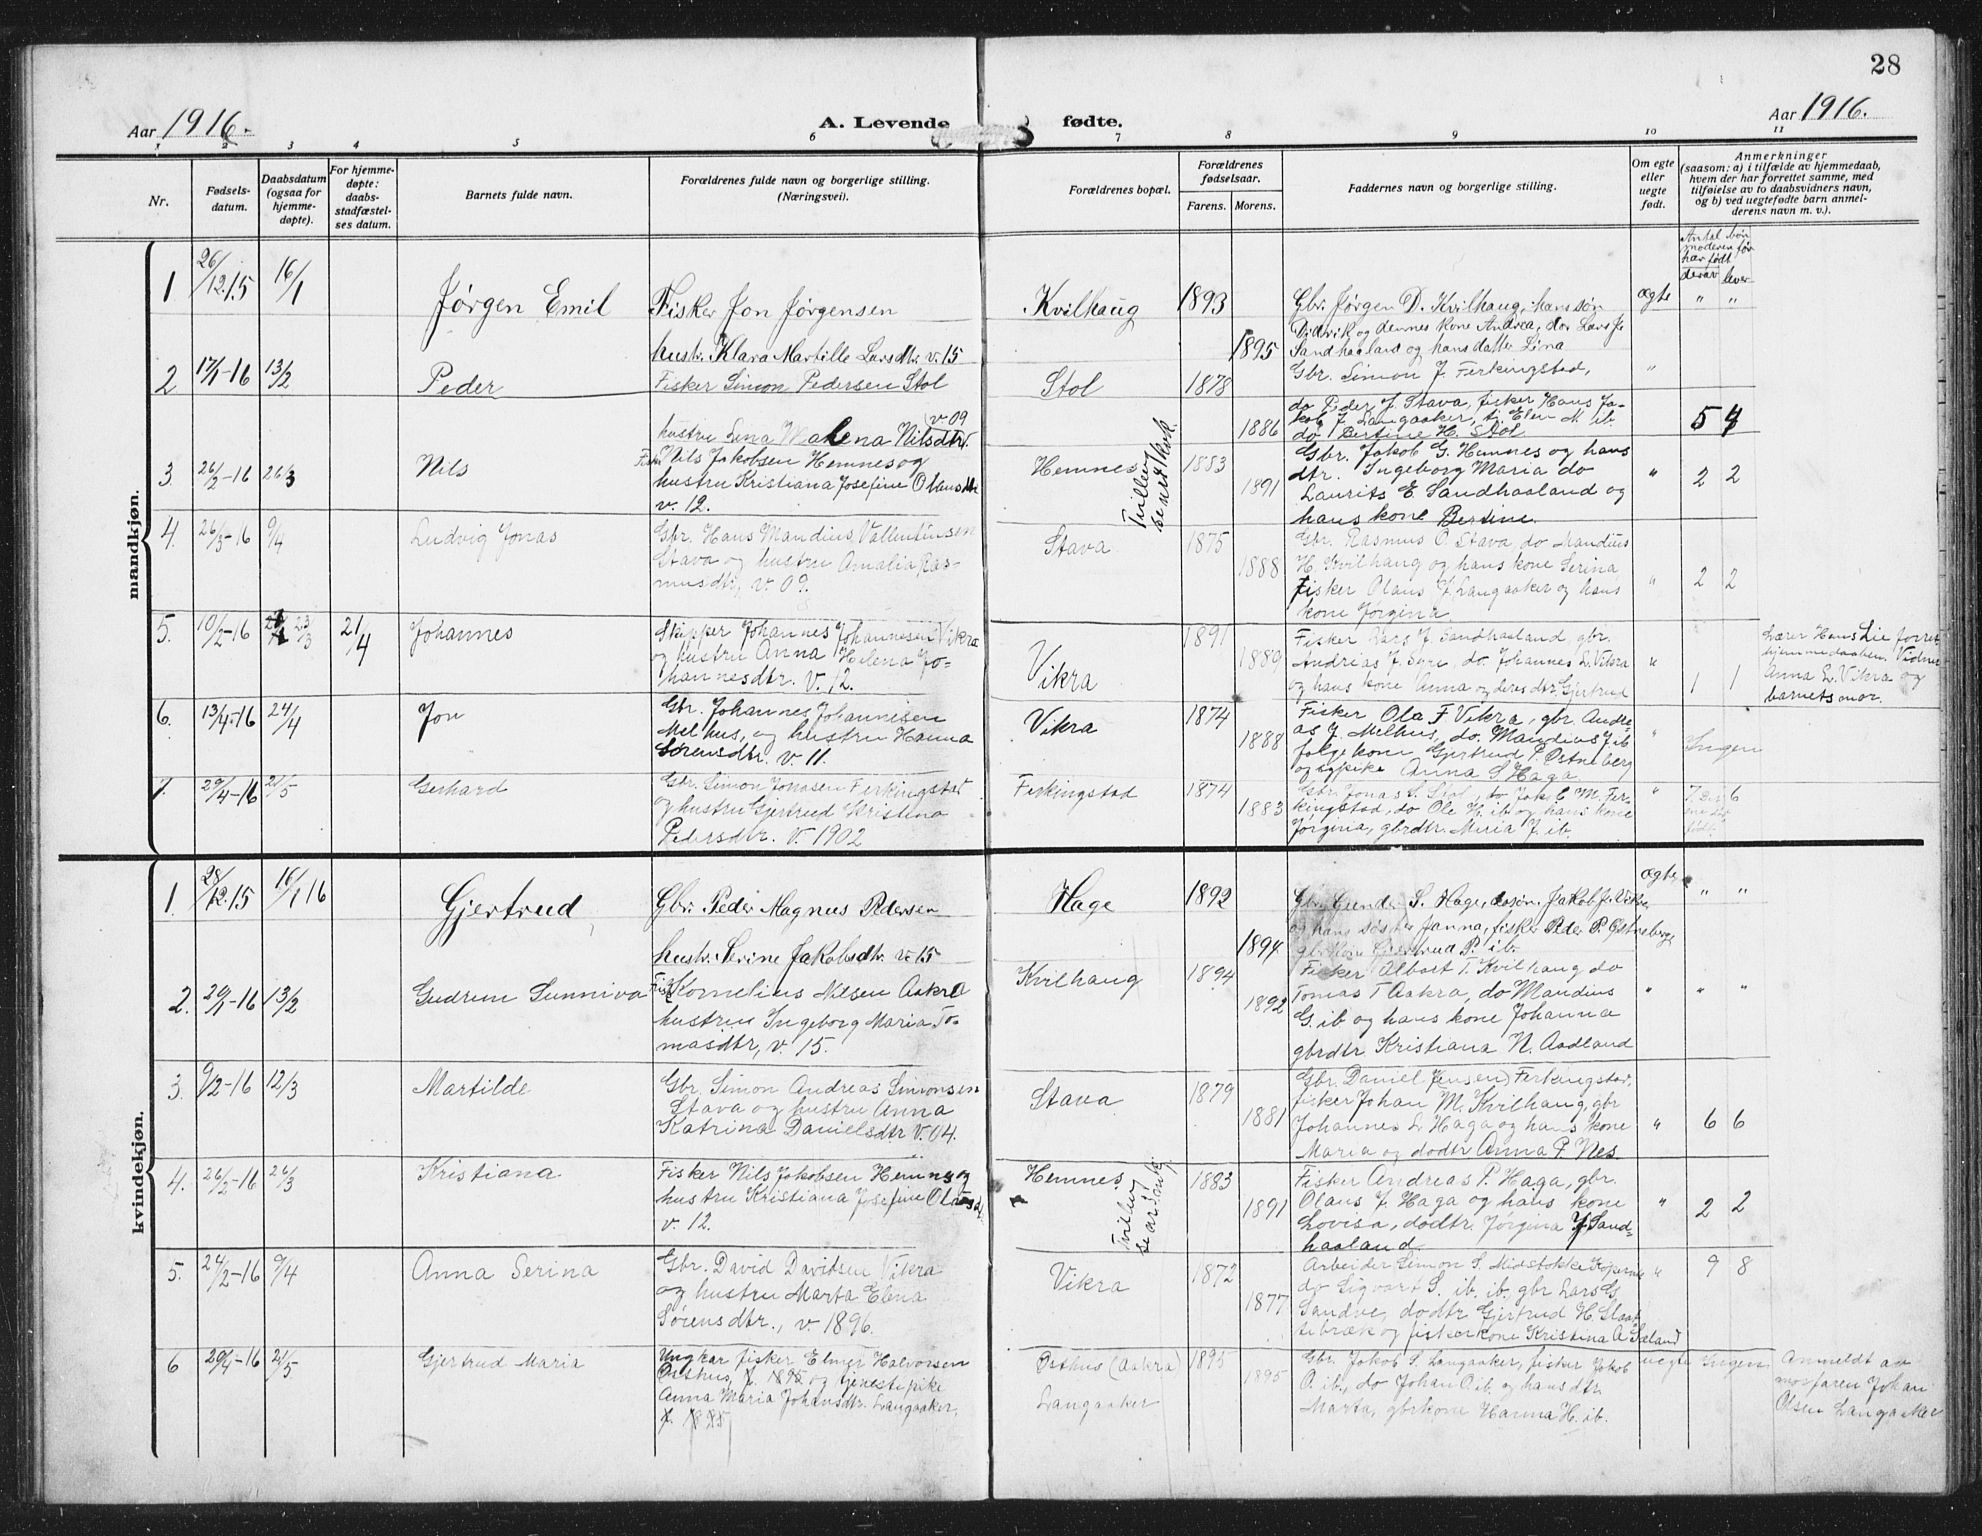 28
Aar 1916.
A. Levende fødte.
Aar 1916.
1 2 3 4 5 6 7 8 9 10 11
Nr.
Fødsels-
datum.
Daabsdatum
(ogsaa for
hjemme-
døpte).
For hjemme-
døpte:
daabs-
stadfæstel-
ses datum.
Barnets fulde navn.
Forældrenes fulde navn og borgerlige stilling.
(Næringsvei).
Forældrenes bopæl.
Forældrenes
fødselsaar.
Farens. Morens.
Faddernes navn og borgerlige stilling.
Om egte
eller
uegte
født.
Anmerkninger
(saasom: a) i tilfælde av hjemmedaab,
hvem der har forrettet samme, med
tilføielse av to daabsvidners navn,
og b) ved uegtefødte barn anmel-
derens navn m. v.).
Antal børn
moderen før
har født
derav lever
mandkjøn.
1 26/12.15 16/1 Jørgen Emil
Fisker Jon Jørgensen
hustr. Klara Martille Larsdtr. v. 15
Kvilhaug 1893 1895
Gbr. Jørgen D. Kvilhaug, hans søn
Didrik og dennes kone Andrea, do Lars J.
Sandhaaland og hans datter Lina
ægte " "
2 17/1-16 13/2 Peder
Fisker Simon Pedersen Stol
hustru Lena Malena Nilsdtr.
v. 09
Stol 1878 1886
Gbr. Simon J. Ferkingstad,
do Peder J. Stava, fisker Hans Ja-
kob J Langaaker, tj. Elen M. ib.
do Bertine H. Stol
" 5 4
3 26/2-16 26/3 Nils
Fisker Nils Jakobsen Hemnes og
hustru Kristiana Josefine Olausdtr
v. 12.
Hemnes 1883 1891
Tvilling
se næst kvk
Gbr. Jakob G. Hemnes og hans
dtr. Ingeborg Maria do
Laurits E. Sandhaaland og
hans kone Bertine.
" 2 2
4. 26/3-16 9/4 Ludvig Jonas
Gbr. Hans Mandius Vallentinsen
Stava og hustru Amalia Ras-
musdtr, v. 09.
Stava 1875 1888
Gbr. Rasmus O. Stava, do Mandius
H. Kvilhaug og hans kone Serina
Fisker Olaus J. Langaaker og hans
kone Jørgina
" 2 2
5. 10/2-16 23/3 21/4 Johannes
Skipper Johannes Johannesen Vikra
og hustru Anna Helena Jo-
hannesdtr. v. 12.
Vikra 1891 1889
Fisker Lars J. Sandhaaland, gbr.
Andreas J. Syre, do. Johannes L. Vikra
og hans kone Anna og deres dtr. Gjertrud
" 1 1
Lærer Hans Lie forret
hjemmedaaben. Vidner
Anna L. Vikra og
barnets mor.
6. 13/4-16 24/4 Jon
Gbr. Johannes Johannesen
Melhus, og hustru Hanna
Sørensdtr. v. 11.
Vikra 1874 1888
Fisker Ola F Vikra, gbr. Andre-
as J Melhus, do. Mandius J ib
folgekone Gjertrud P. Østneberg
og pike Anna S. Haga.
" Ingen
7. 29/4-16 21/5 Gerhard
Gbr. Simon Jonasen Ferkingstad
og hustru Gjertrud Kristina
Pedersdtr. v. 1902
Ferkingstad 1874 1883
Gbr. Jonas S. Stol, do Jakob M. Fer-
kingstad, do Ole H. ib og hans kone
Jørgina, gbrdtr. Maria J. ib.
" 7 6
kvindekjøn.
1. 28/12.15 16/1 16 Gjertrud
Gbr. Peder Magnus Pedersen
hustr. Serine Jakobsdtr. v. 15
Hage 1892 1894
Gbr. Gunder S. Hage, do søn. Jakob J. Vikra
og hans søster Janna, fisker Peder P. Østneberg,
gbr. kone Gjertrud P. ib.
ægte " "
2. 20/1-16 13/2 Gudrun Sunniva
Fisk. Kornelius Nilsen Aakra
hustru Ingeborg Maria To-
masdtr, v. 15.
Kvilhaug 1894 1892
Fisker Albert T. Kvilhaug do
Tomas T Aakra, do Mandius
G. ib og hans kone Johanna
gbrdtr Kristiana N. Aadland
" " "
3. 9/2-16 12/3 Martilde
Gbr. Simon Andreas Simonsen
Stava og hustru Anna
Katrina Danielsdtr v. 04.
Stava 1879 1881
Gbr. Daniel Jensen Ferkingstad,
fisker Johan M. Kvilhaug, gbr
Johannes L Haga og hans kone
Maria og do dtr Anna P. Nes
" 6 6
4. 26/2-16 26/3 Kristiana
Fisker Nils Jakobsen Hemnes og
hustru Kristiana Josefine Olausdtr
v. 12.
Hemnes 1883 1891
Tvilling
Fisker Andreas P. Haga, gbr.
Olaus J. Haga og hans kone
Lovisa, do dtr. Jørgina J. Sand-
haaland.
" 2 2
5. 24/2-16 9/4 Anna Serina
Gbr. David Davidsen Vikra
og hustru Marta Elena
Sørensdtr., v. 1896.
Vikra 1872 1877
Arbeider Simon S. Midstokke Kopervik
do Sigvart S. ib. ib. gbr Lars G.
Sandve, do dtr Gjertrud H. Slaat-
tebræk og fiskerkone Kristina A Sæland
" 9 8
6 20/4-16 21/5 Gjertrud Maria
Ungkar fisker Elmer Halvorsen
Østhus, f. 1895 og tjenestepike
Anna Maria Johansdtr. Langaaker,
f. 1895
Østhus (Aakra) 1895
Langaaker 1895
Gbr. Jakob S. Langaaker, fisker Jakob
O. ib., do Johan O. ib. og hans dtr.
Marta, gbrkone Hanna H. ib.
uegte Ingen
Anmeldt av
morfaren Johan
Olsen Langaaker